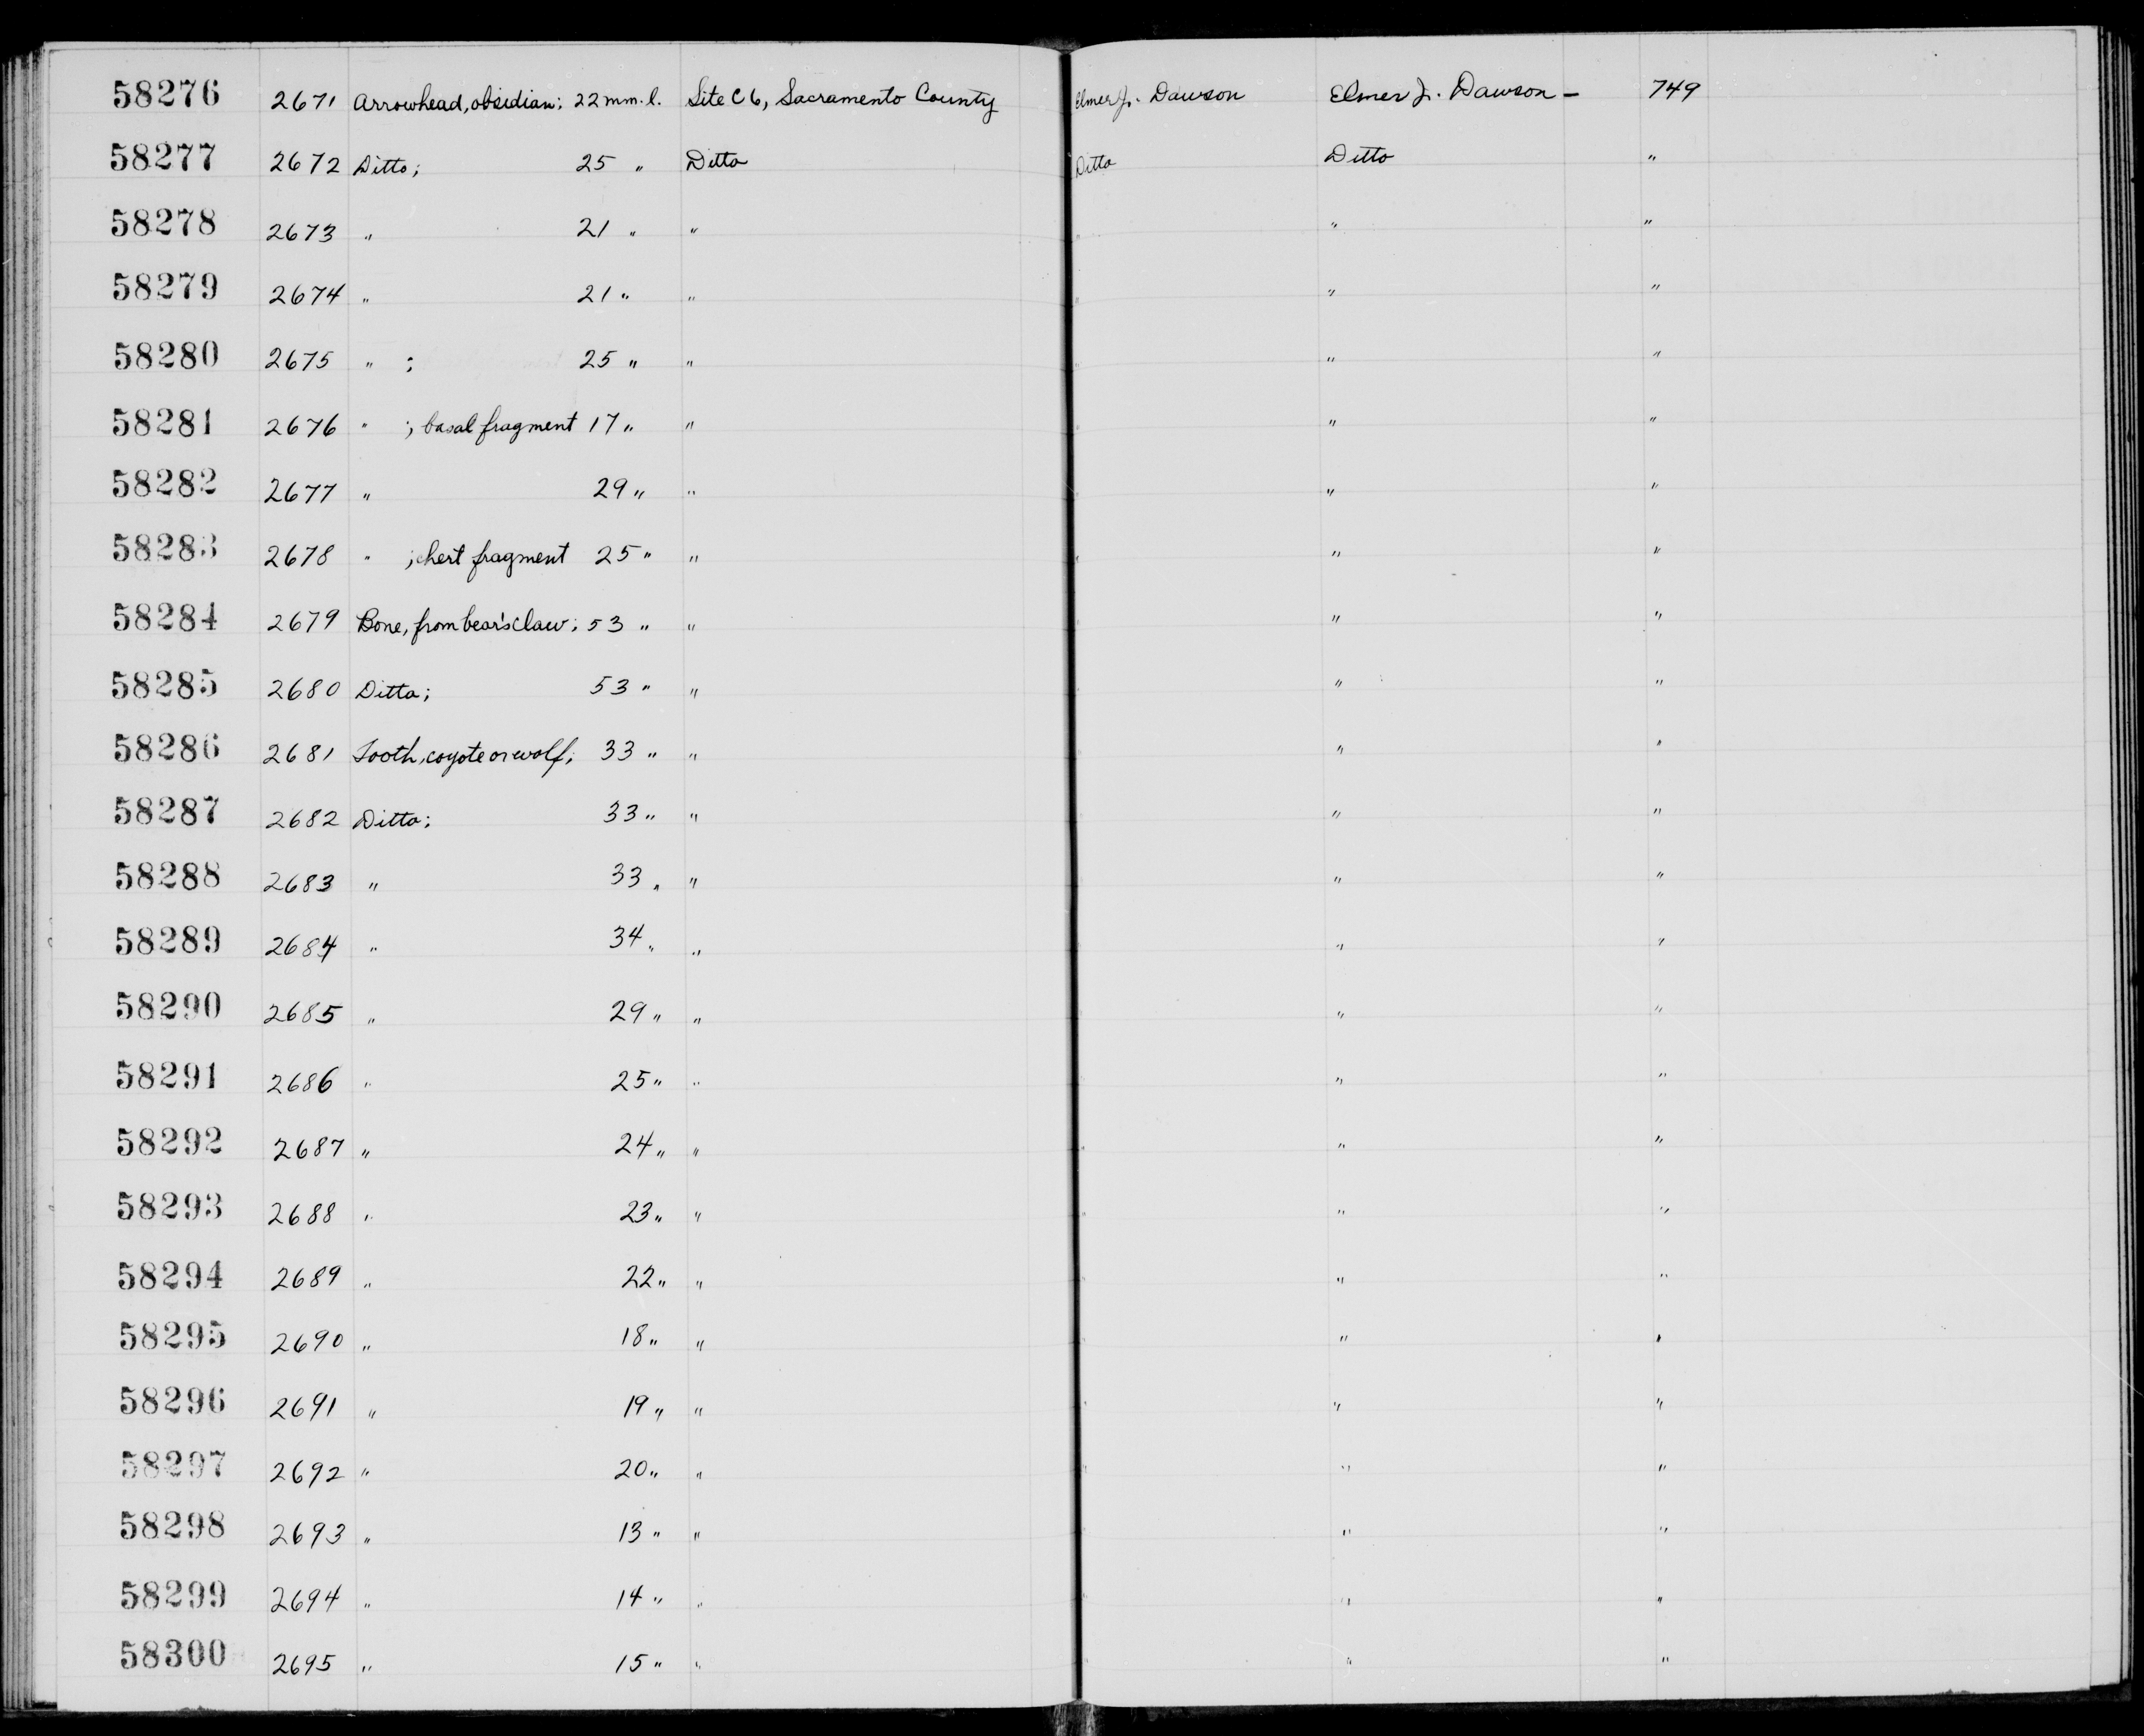 58276 2671 Arrowhead, obsidian; 22 mm. l. Site C6, Sacramento County Elmer J. Dawson Elmer J. Dawson - 749
58277 2672 Ditto; 25 " Ditto Ditto Ditto "
58278 2673 " 21 " " " " "
58279 2674 " 21 " " " " "
58280 2675 " ; 25 " " " " "
58281 2676 " ; basal fragment 17 " " " " "
58282 2677 " 29 " " " " "
58283 2678 " ; chert fragment 25 " " " " "
58284 2679 Bone, from bear's claw; 53 " " " " "
58285 2680 Ditto; 53 " " " " "
58286 2681 Tooth, coyote or wolf; 33 " " " "
58287 2682 Ditto; 33 " " " "
58288 2683 " 33 " " " "
58289 2684 " 34 " " " "
58290 2685 " 29 " " " "
58291 2686 " 25 " " " "
58292 2687 " 24 " " " " "
58293 2688 " 23 " " " " "
58294 2689 " 22 " " " " "
58295 2690 " 18 " " " "
58296 2691 " 19 " " " " "
58297 2692 " 20 " " " " "
58298 2693 " 13 " " " " "
58299 2694 " 14 " " " " "
58300 2695 " 15 " " " " "